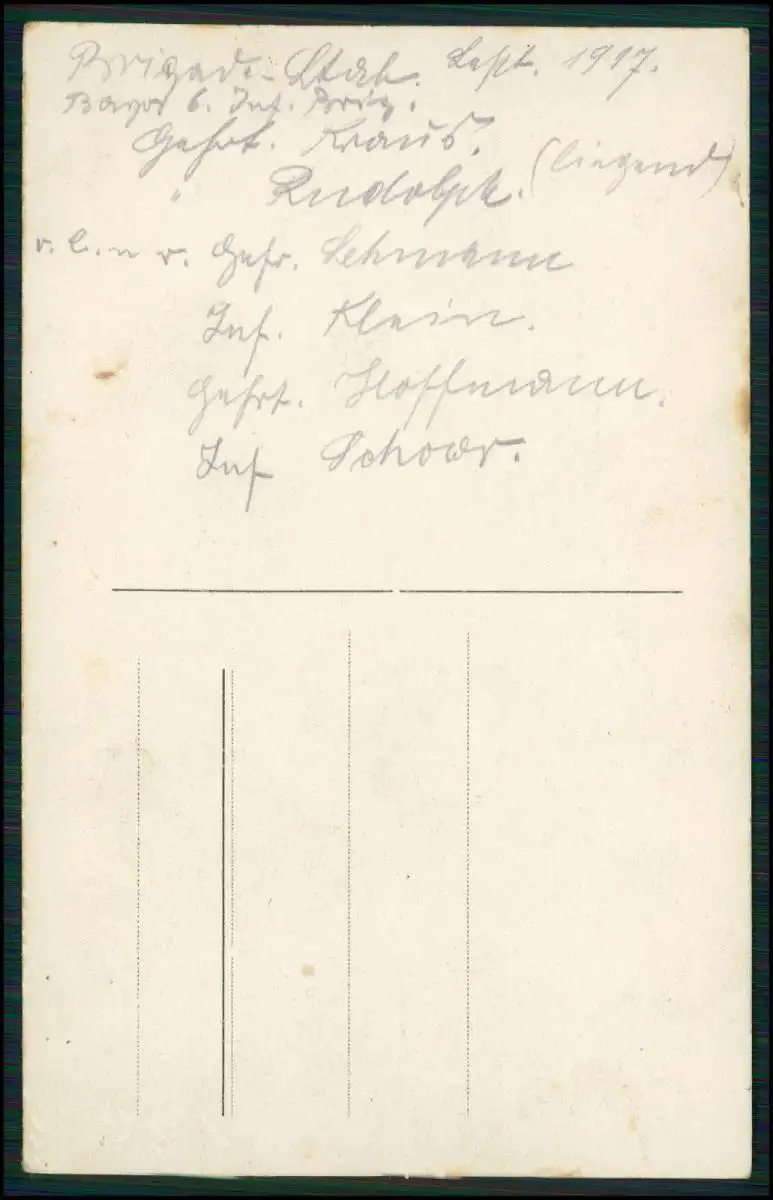 Brigade-Stab. Sept. 1917.
Bayr 6. Inf. Brig.
Gefrt. Kraus.
" Rudolph. (liegend)
v. l. n r. Gefr. Lehmann
Inf. Klein.
Gefrt. Hoffmann.
Inf